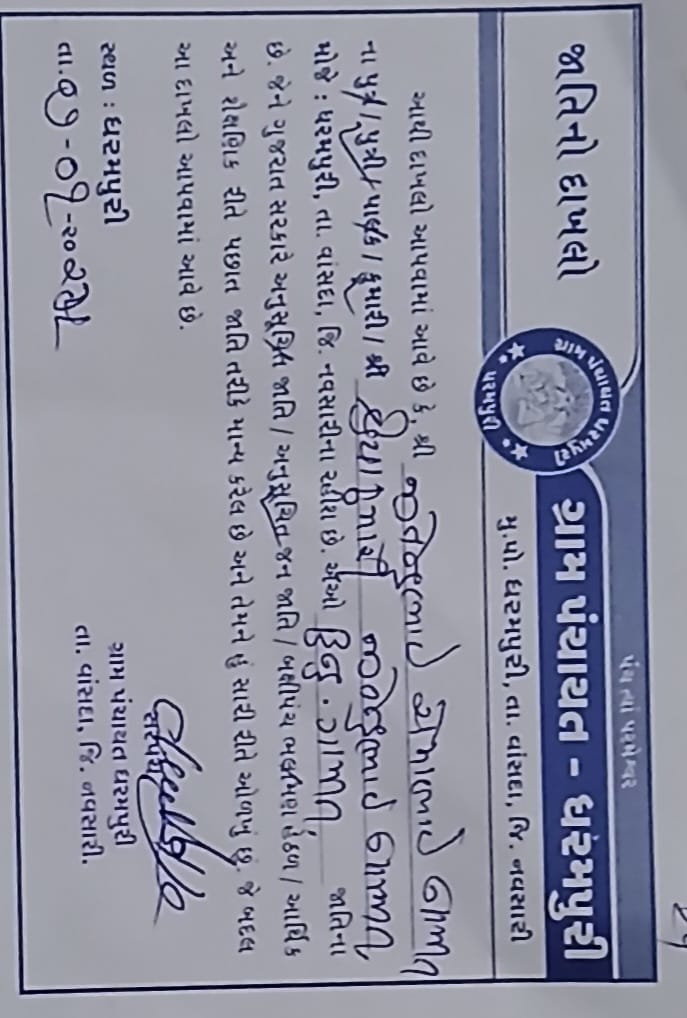 પંચ ત્યાં પરમેશ્વર
જાતિનો દાખલો
ગ્રામ પંચાયત - ધરમપુરી
મુ.પો. ધરમપુરી, તા. વાંસદા, જિ. નવસારી
ગ્રામ પંચાયત ધરમપુરી
ધરમપુરી
આથી દાખલો આપવામાં આવે છે કે, શ્રી જીતેન્દ્રભાઈ
ના પુત્ર / પુત્રી / પત્ની / કુમારી / શ્રી જીતેન્દ્રભાઈ
મોજે : ધરમપુરી, તા. વાંસદા, જિ. નવસારીના રહીશ છે. એઓ હિન્દુ જાતિના
છે. જેને ગુજરાત સરકારે અનુસૂચિત જાતિ / અનુસૂચિત જન જાતિ / બક્ષીપંચ હેઠળ / આર્થિક
અને શૈક્ષણિક રીતે પછાત જાતિ તરીકે માન્ય કરેલ છે અને તેમને હું સારી રીતે ઓળખું છું. જે બદલ
આ દાખલો આપવામાં આવે છે.
સ્થળ : ધરમપુરી
તા.
સરપંચ
ગ્રામ પંચાયત ધરમપુરી
તા. વાંસદા, જિ. નવસારી.